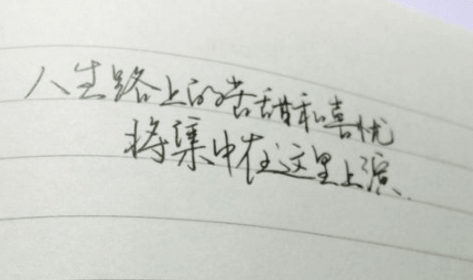 人生路上的苦甜和喜忧
将集中在这里上演.